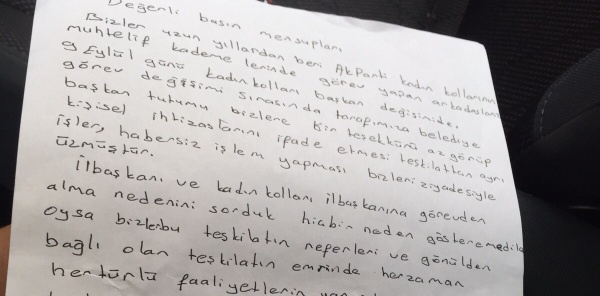 Değerli basın mensupları
Bizler uzun yıllardan beri AkParti kadın kollarının
muhtelif kademelerinde görev yapan arkadaşları
9 Eylül günü kadın kolları başkan değişiminde,
görev değişimi sırasında tarafımıza belediye
başkan tutumu bizlere bir teşekkürü az görüp
kişisel ihtizaslarını ifade etmesi teşkilattan ayrı
işler, habersiz işlem yapması bizleri ziyadesiyle
üzmüştür.
İlbaşkanı ve kadın kolları ilbaşkanına görevden
alma nedenini sorduk hiçbir neden gösteremediler
Oysa bizler bu teşkilatın neferleri ve gönülden
bağlı olan teşkilatın emrinde herzaman
hertürlü faaliyetlerin